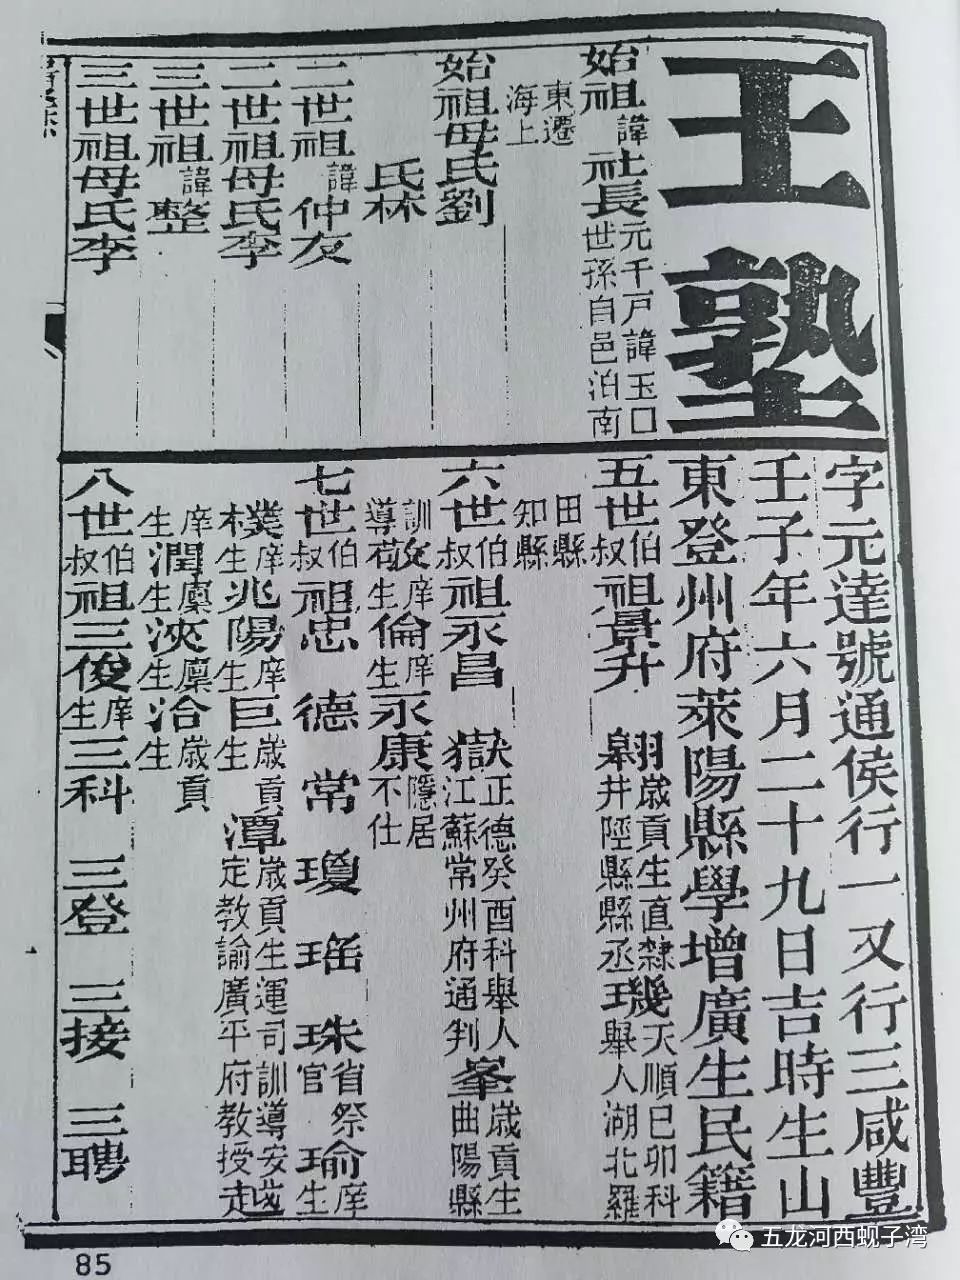 王塾
字元達號通侯行一又行三咸豐
壬子年六月二十九日吉時生山
東登州府萊陽縣學增廣生民籍
始祖諱社長元千戶諱玉口世孫自邑泊南
東遷海上
始祖母氏劉
氏林
二世祖諱仲友
二世祖母氏李
三世祖諱整
三世祖母氏李
五世伯叔祖景升 翱歲貢生直隸 皋井陘縣縣丞 璣天順己卯科舉人湖北羅
田縣知縣
六世伯叔祖永昌 嶽正德癸酉科舉人江蘇常州府通判 峯歲貢生曲陽縣
訓導 庠生倫庠生永康隱居不仕
七世伯叔祖忠 德 常 瓊 瑶 珠省祭官 瑜庠生
樸庠生兆陽庠生巨歲貢生潭歲貢生運司訓導安定教諭廣平府教授走
庠生潤廩生浹廩生洽歲貢生
八世伯叔祖三俊庠生三科 三登 三接 三聘
85
五龙河西蚬子湾